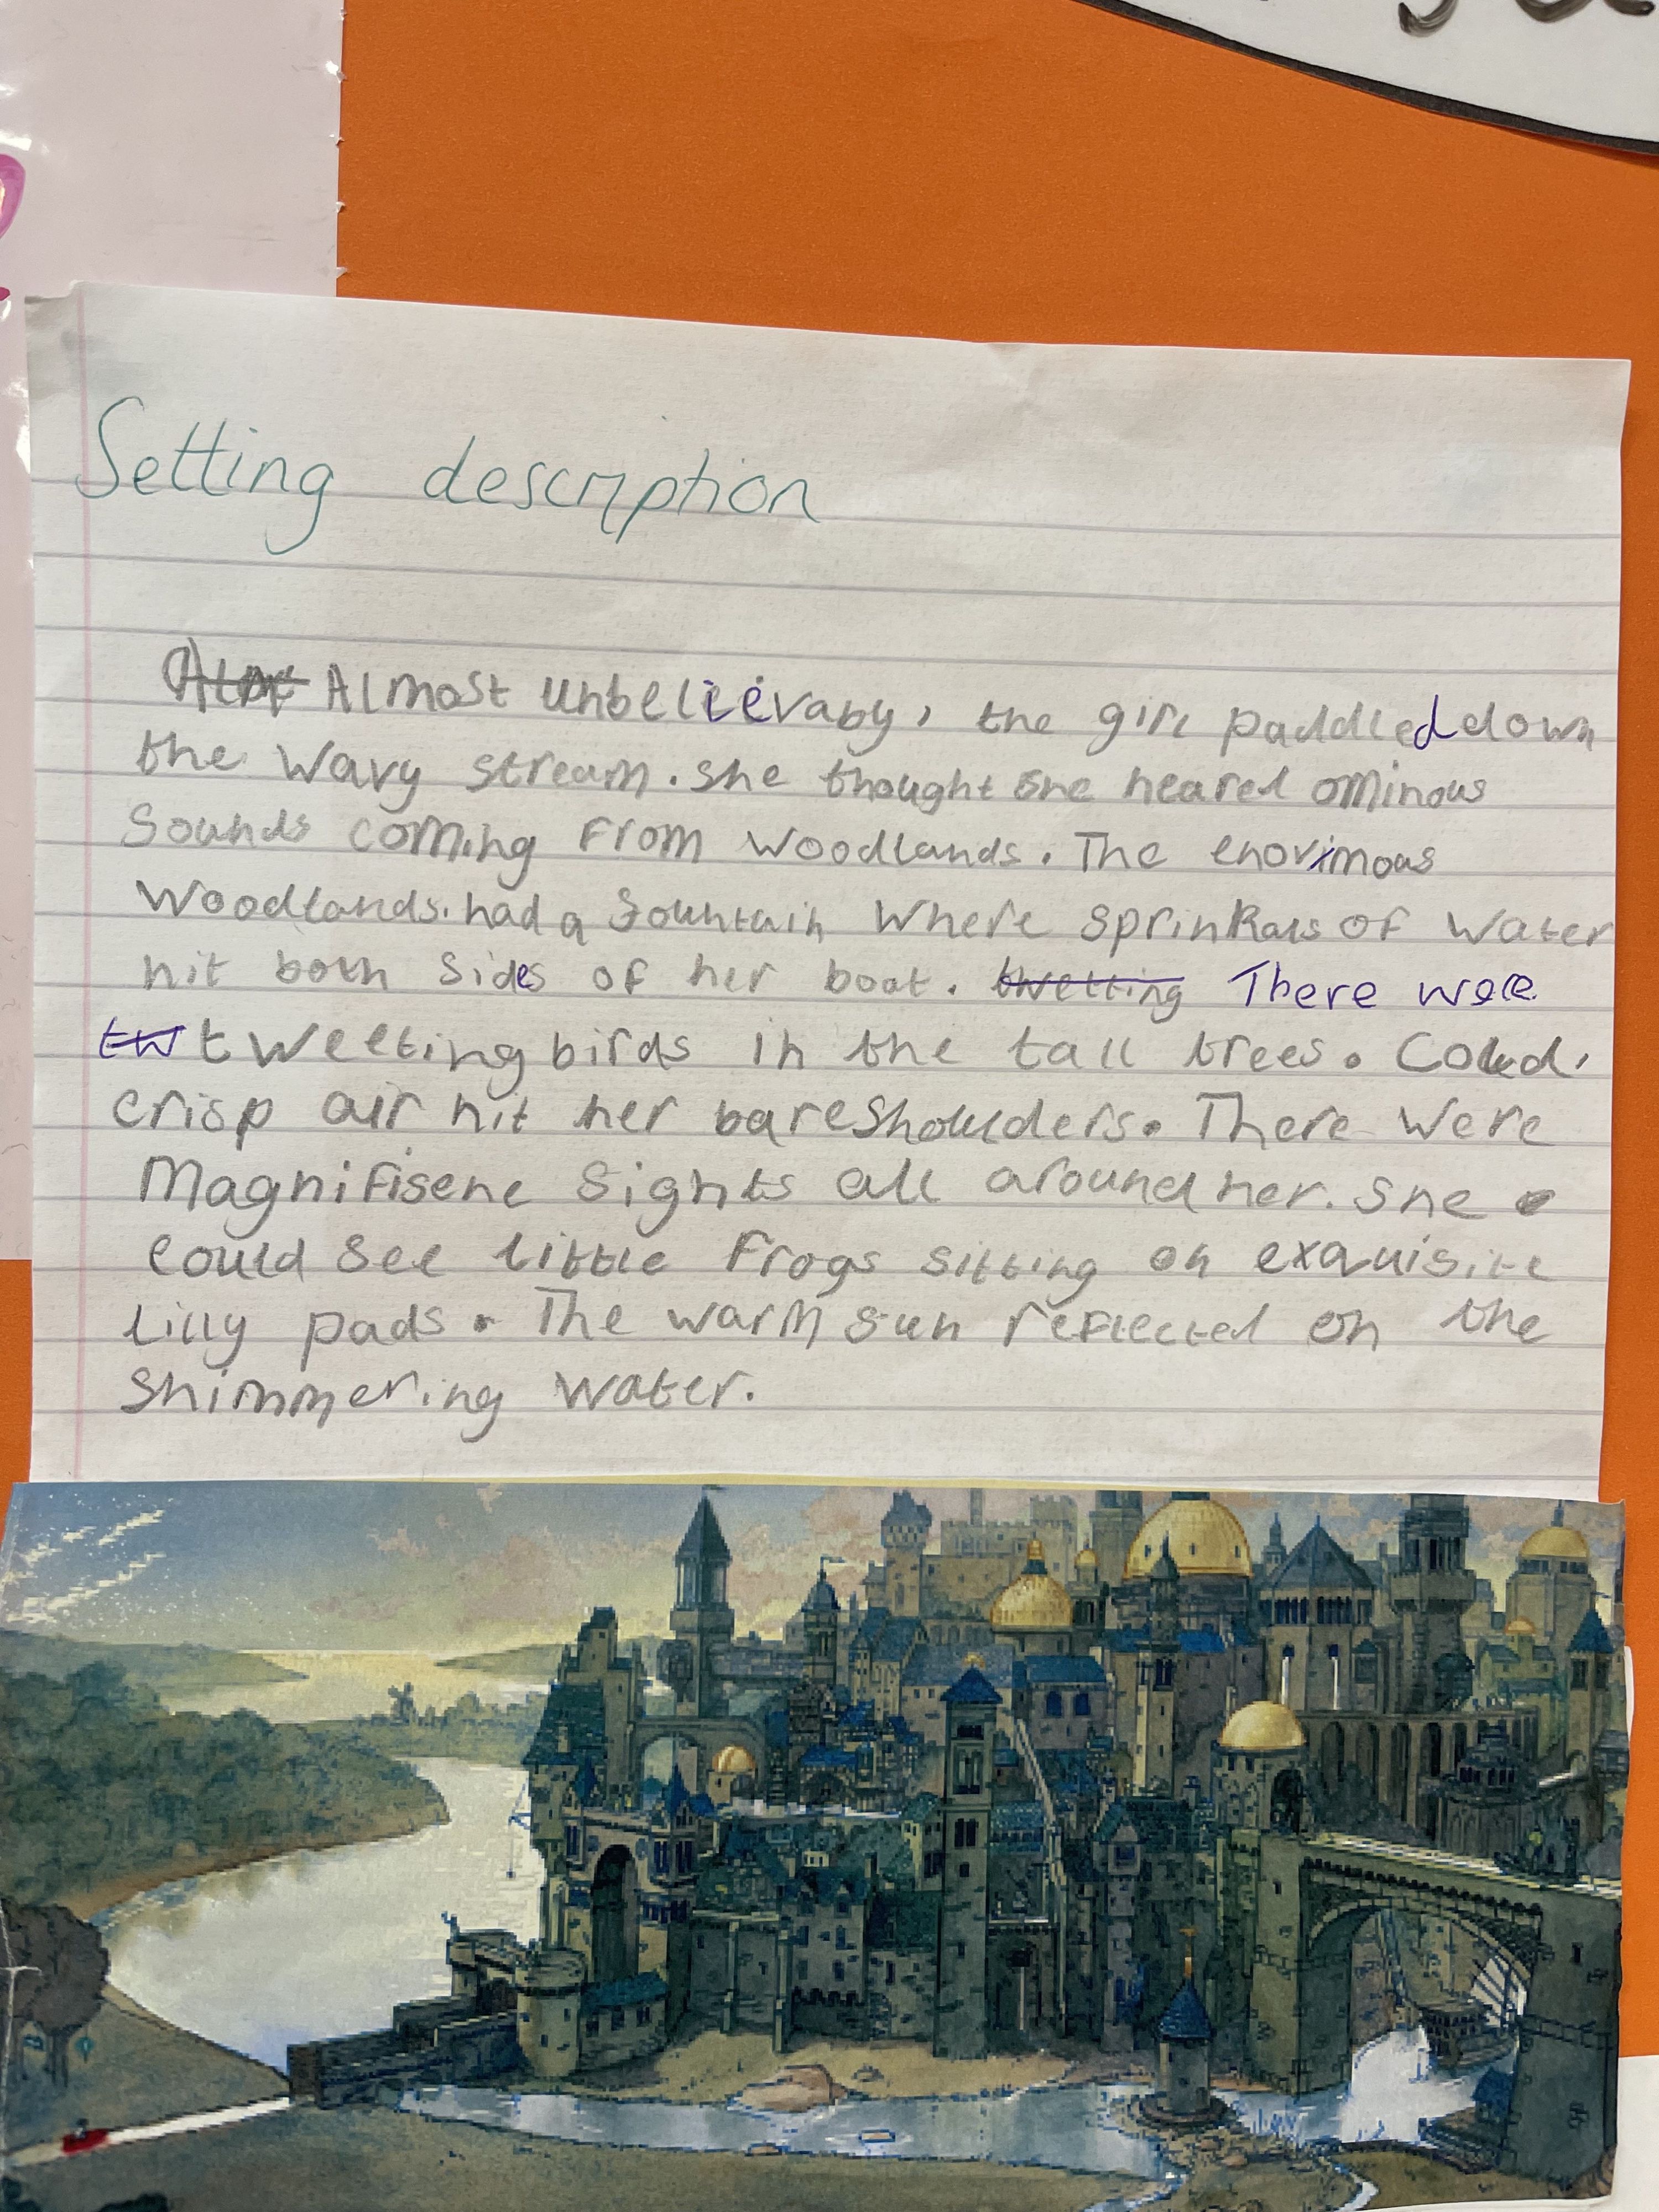 Setting description
Almost unbelieévaby, the girl paddled down
the wavy stream. she thought she heared ominous
sounds coming from woodlands. The enorimous
Woodlands. had a fountain where sprinkals of water
hit both sides of her boat. twetting There were
tw tweeting birds in the tall trees. Cold,
crisp air hit her bare shoulders. There were
Magnifisent sights all around her. She
could see little frogs sitting on exquisite
lilly pads. The warm sun reflected on the
shimmering water.